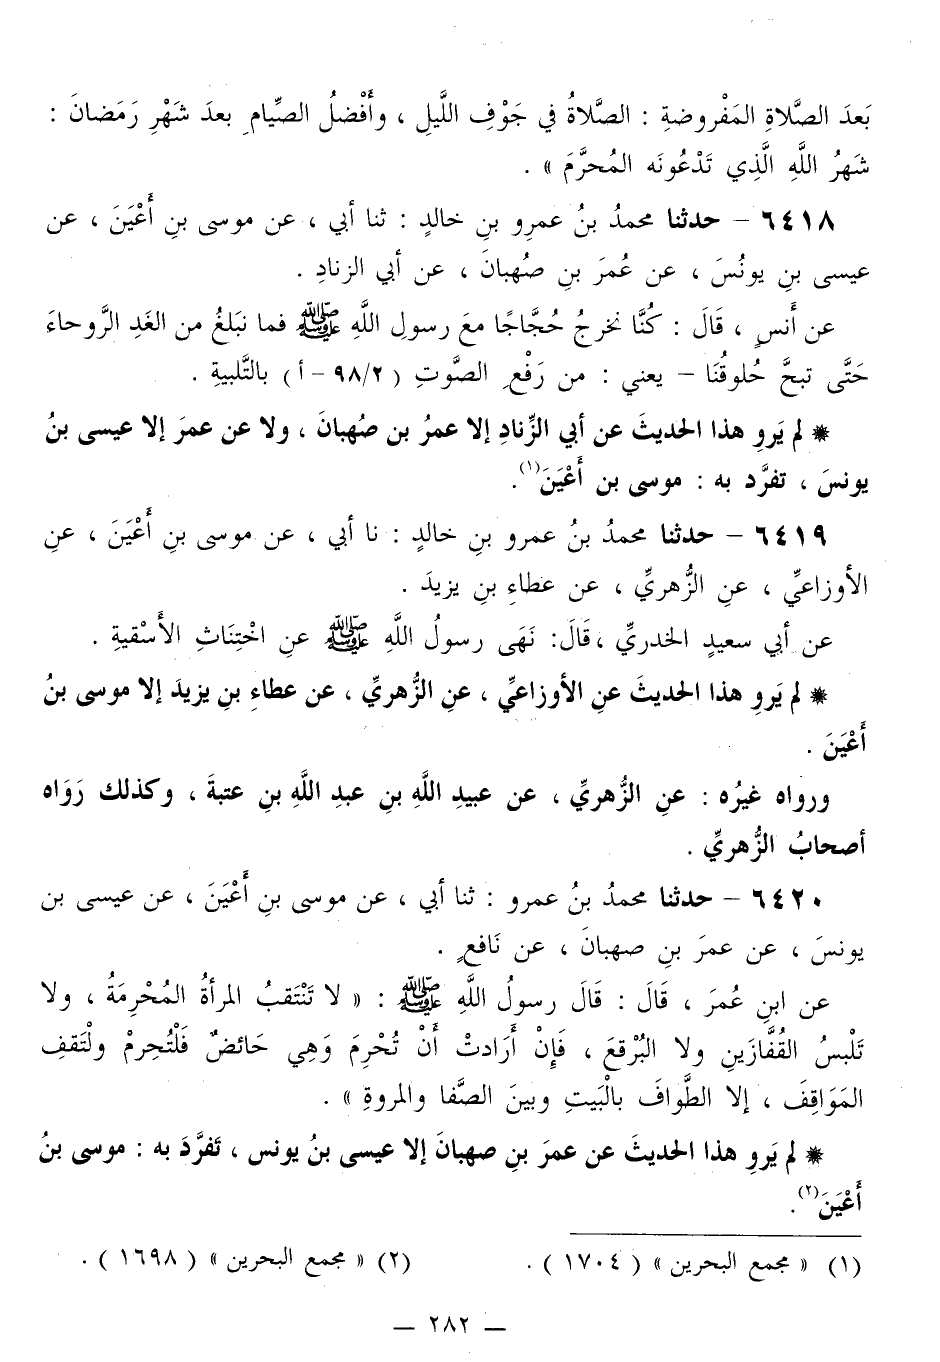 بَعدَ الصَّلاةِ المَفْروضةِ : الصَّلاةُ في جَوْفِ اللَّيلِ ، وأَفْضلُ الصِّيامِ بعدَ شَهْرِ رَمَضانَ :
شَهرُ اللَّهِ الَّذِي تَدْعُونَه المُحرَّمَ » .
٦٤١٨ – حدثنا محمدُ بنُ عمرِو بنِ خالدٍ : ثنا أبي ، عن موسى بنِ أَعْيَنَ ، عن
عيسى بنِ يونُسَ ، عن عُمرَ بنِ صُهبانَ ، عن أبي الزنادِ .
عن أَنسٍ ، قَالَ : كُنَّا نخرجُ حُجَّاجًا معَ رسولِ اللَّهِ ﷺ فما نَبلغُ من الغَدِ الرَّوحاءَ
حَتَّى تبحَّ حُلوقُنَا – يعني : من رَفْعِ الصَّوتِ ( ٩٨/٢ – أ ) بالتَّلبيةِ .
* لم يَروِ هذا الحديثَ عن أبي الزِّنادِ إلا عمرُ بن صُهبانَ ، ولا عن عمرَ إلا عيسى بنُ
يونسَ ، تفرَّد به : موسى بن أَعْيَنَ(١).
٦٤١٩ – حدثنا محمدُ بنُ عمرو بنِ خالدٍ : نا أبي ، عن موسى بنِ أَعْيَنَ ، عنِ
الأوزاعيِّ ، عنِ الزُّهريِّ ، عن عطاءِ بنِ يزيدَ .
عن أبي سعيدٍ الخدريِّ ،قَالَ: نَهَى رسولُ اللَّهِ ﷺ عنِ اخْتِنَاثِ الأَسْقيةِ .
* لم يَروِ هذا الحديثَ عنِ الأوزاعيِّ ، عنِ الزُّهريِّ ، عن عطاءِ بنِ يزيدَ إلا موسى بنُ
أَعْيَنَ .
ورواه غيرُه : عنِ الزُّهريِّ ، عن عبيدِ اللَّهِ بنِ عبدِ اللَّهِ بنِ عتبةَ ، وكذلك رَوَاه
أصحابُ الزُّهريِّ .
٦٤٢٠ – حدثنا محمدُ بنُ عمرو : ثنا أبي ، عن موسى بنِ أَعْيَنَ ، عن عيسى بن
يونسَ ، عن عمرَ بنِ صهبانَ ، عن نَافعٍ .
عن ابنِ عُمرَ ، قَالَ : قَالَ رسولُ اللَّهِ ﷺ : « لا تَنْتَقبُ المرأةُ المُحْرِمَةُ ، ولا
تَلْبسُ القُفَّازَينِ ولا البُرْقعَ ، فَإِنْ أَرَادتْ أَنْ تُحْرِمَ وَهِي حَائضٌ فَلْتُحرِمْ ولْتَقفِ
المَوَاقِفَ ، إلا الطَّوافَ بالْبَيتِ وبينَ الصَّفا والمروةِ » .
* لم يَروِ هذا الحديثَ عن عمرَ بنِ صهبانَ إلا عيسى بنُ يونس ، تَفرَّدَ به : موسى بنُ
أَعْيَنَ(٢).
(١) « مجمع البحرين » ( ١٧٠٤ ) . (٢) « مجمع البحرين » ( ١٦٩٨ ) .
— ٢٨٢ —